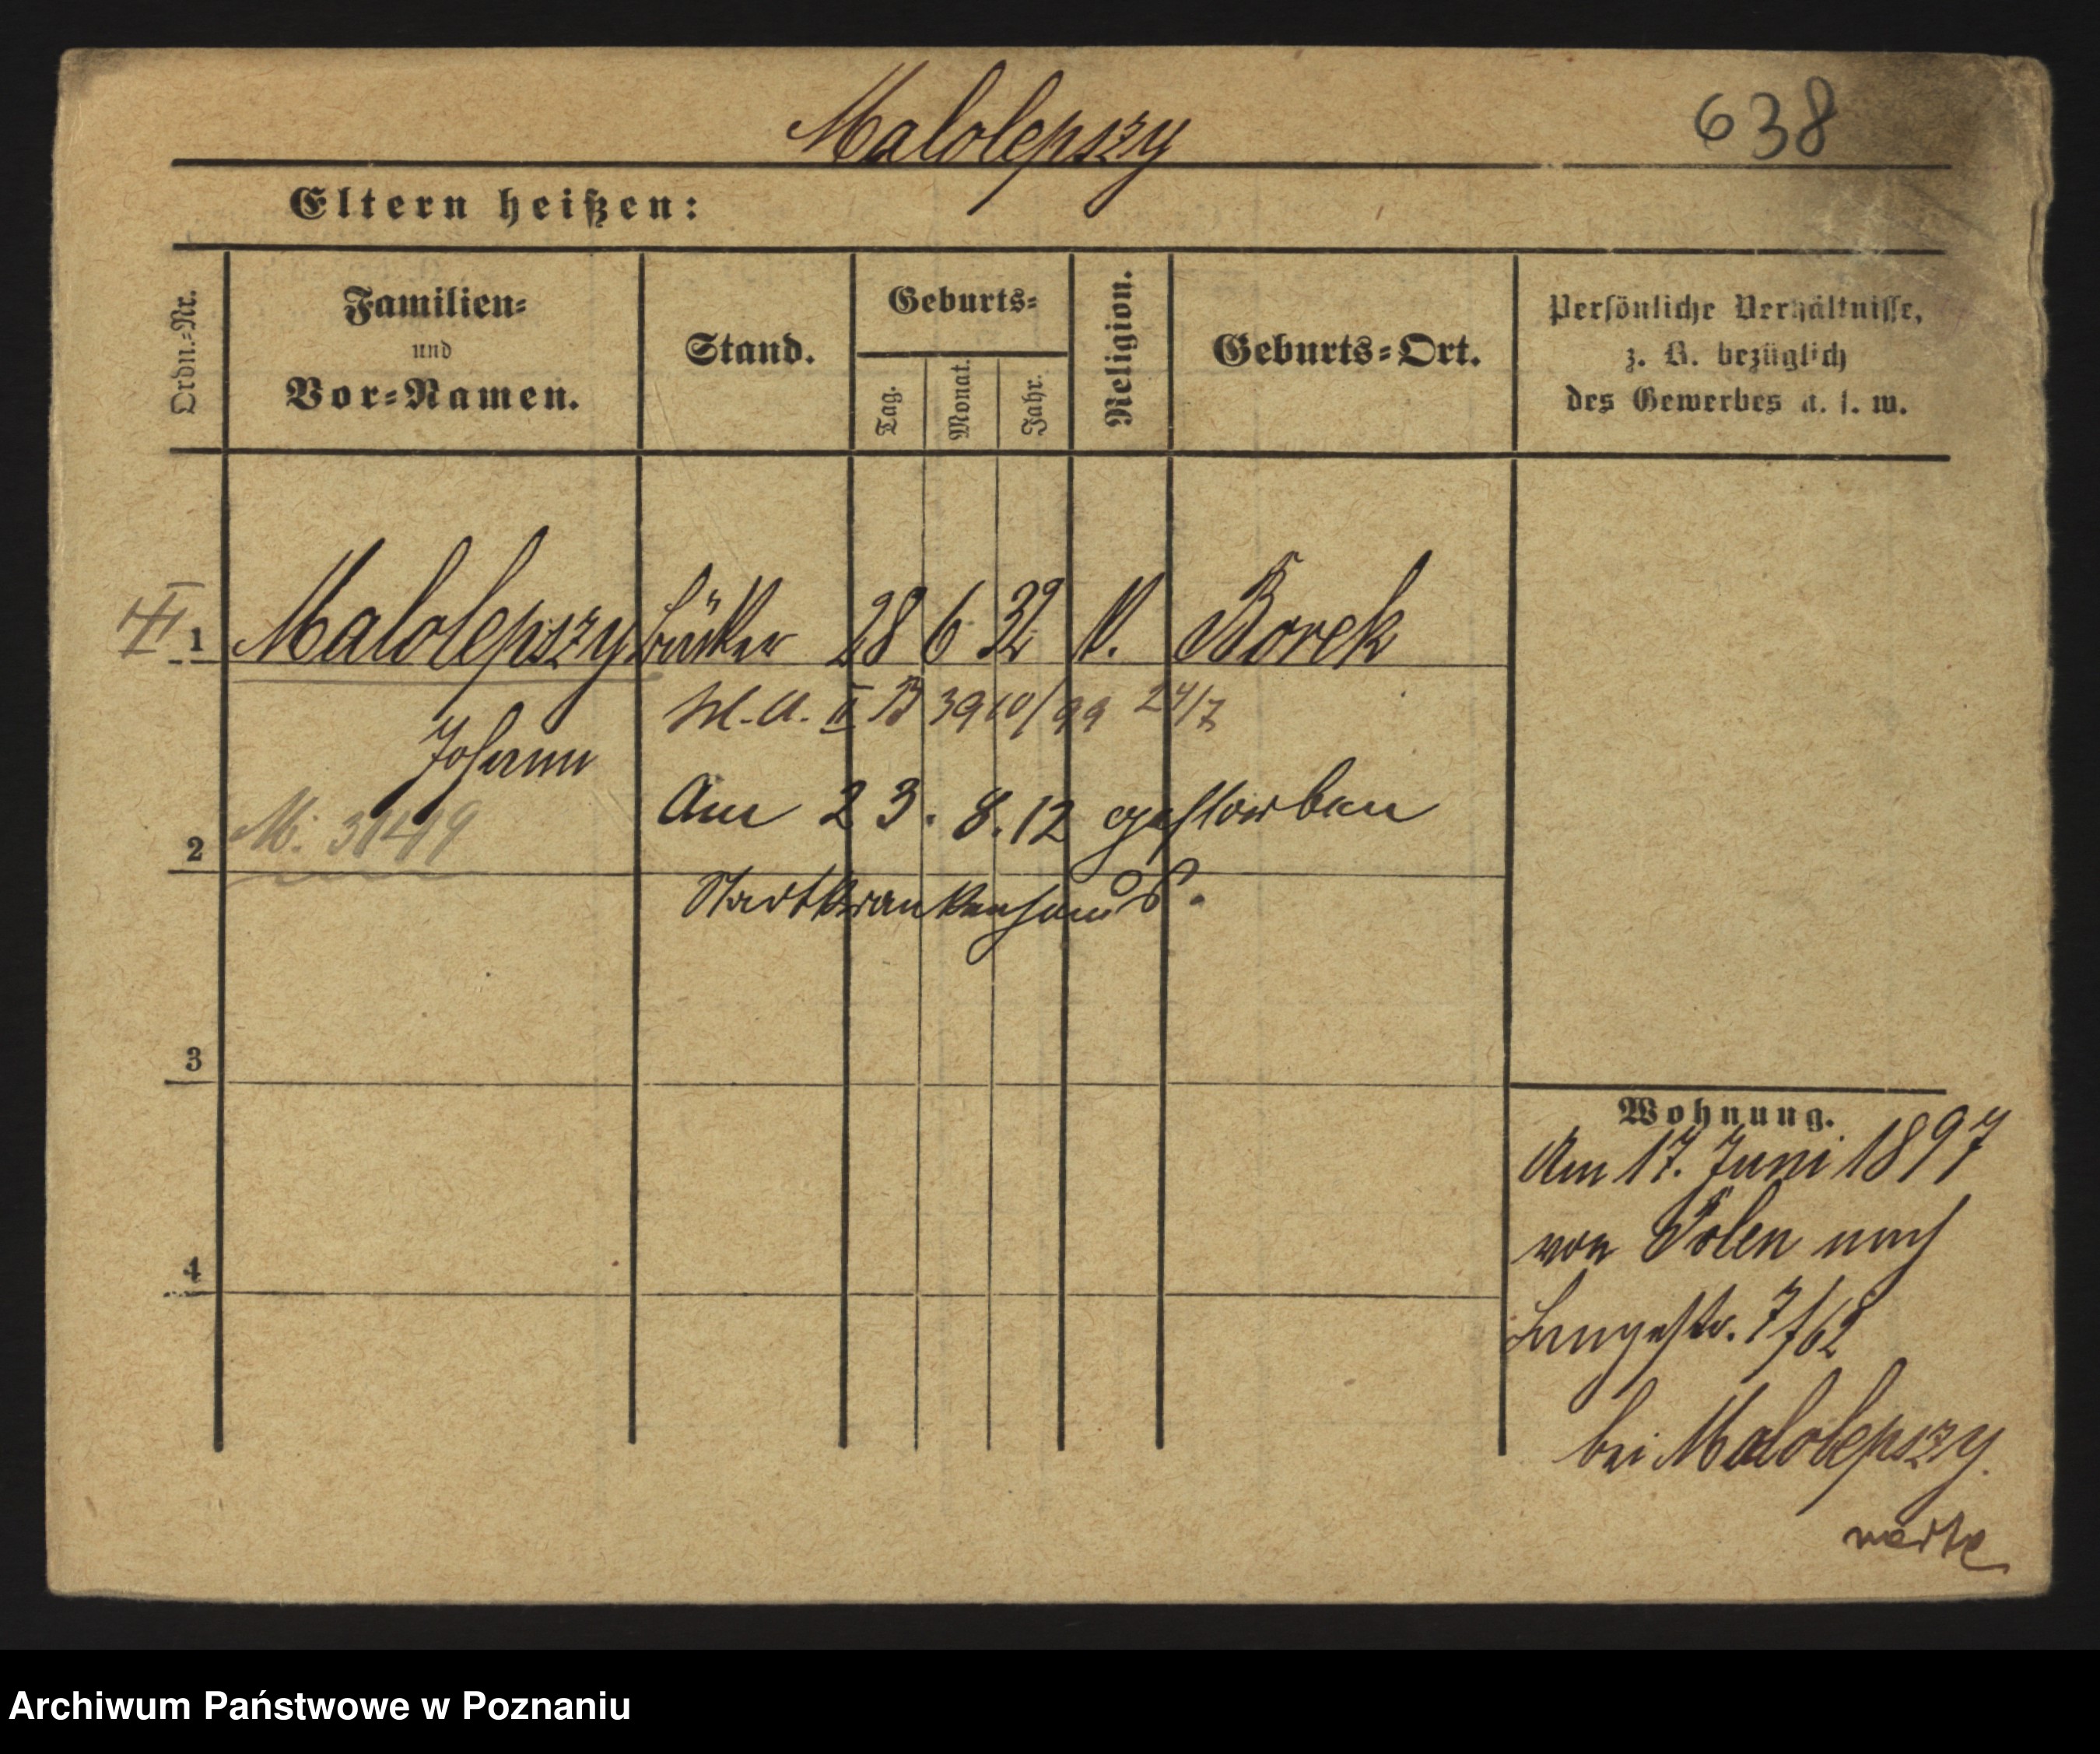 Malolepszy
638
Eltern heißen:
Ordn.-Nr.
Familien-
und
Vor-Namen.
Stand.
Geburts-
Tag.
Monat.
Jahr.
Religion.
Geburts-Ort.
Persönliche Verhältnisse,
z. B. bezüglich
des Gewerbes u. s. w.
1 Malolepszy 28 6 32 K. Borek
II B 3910/99 24/7
Johann
Am 23.8.12 gestorben
2 M. 3149
Stadtkrankenhaus.
3
4
Wohnung.
Am 17. Juni 1897
von Polen nach
Langestr. 7/62
bei Malolepszy.
Archiwum Państwowe w Poznaniu